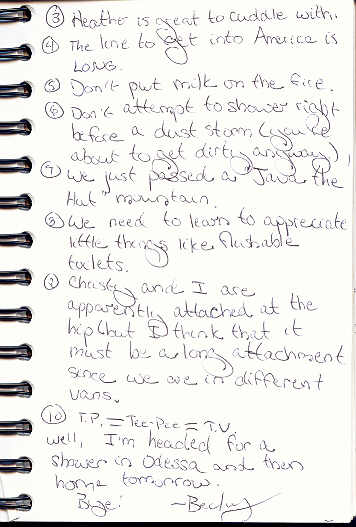 ③ Heather is great to cuddle with.
④ The line to get into America is
LONG.
⑤ Don't put milk on the fire.
⑥ Don't attempt to shower right
before a dust storm (you're
about to get dirty anyway)
⑦ We just passed a "Java the
Hut" mountain.
⑧ We need to learn to appreciate
little things like flushable
toilets.
⑨ Christy and I are
apparently attached at the
hip (but I think that it
must be a long attachment
since we are in different
vans.
⑩ T.P. = Tee-Pee = T.V.
well, I'm headed for a
shower in Odessa and then
home tomorrow.
Bye! ~Becky